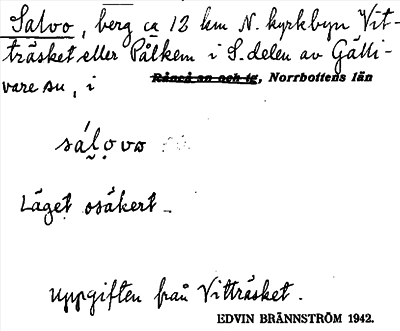 Salvo, berg ca 12 km N. kyrkbyn Vit-
träsket eller Pålkem i S. delen av Gälli-
vare sn, i Råneå sn och tg, Norrbottens län
sálova
Läget osäkert
Uppgiften från Vitträsket.
EDVIN BRÄNNSTRÖM 1942.